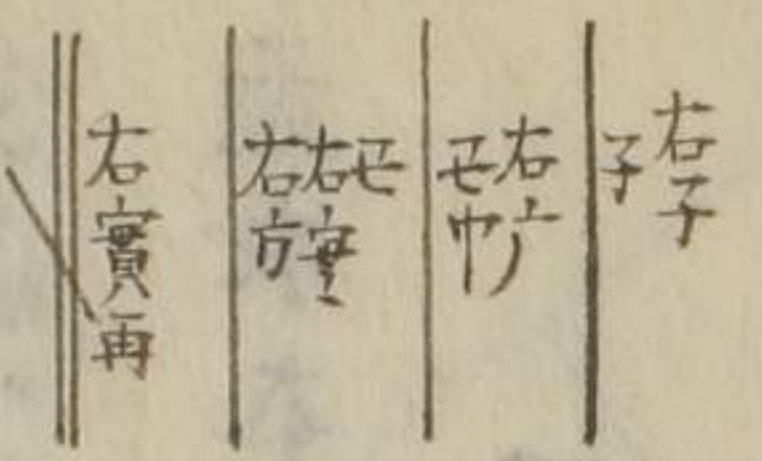 右子
子
右广
㔫巾
㔫
右実
右方
右實再